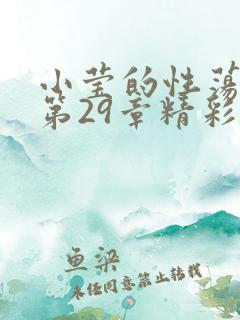 小莹的性荡
第29章精彩
鱼梁
未经同意禁止转载